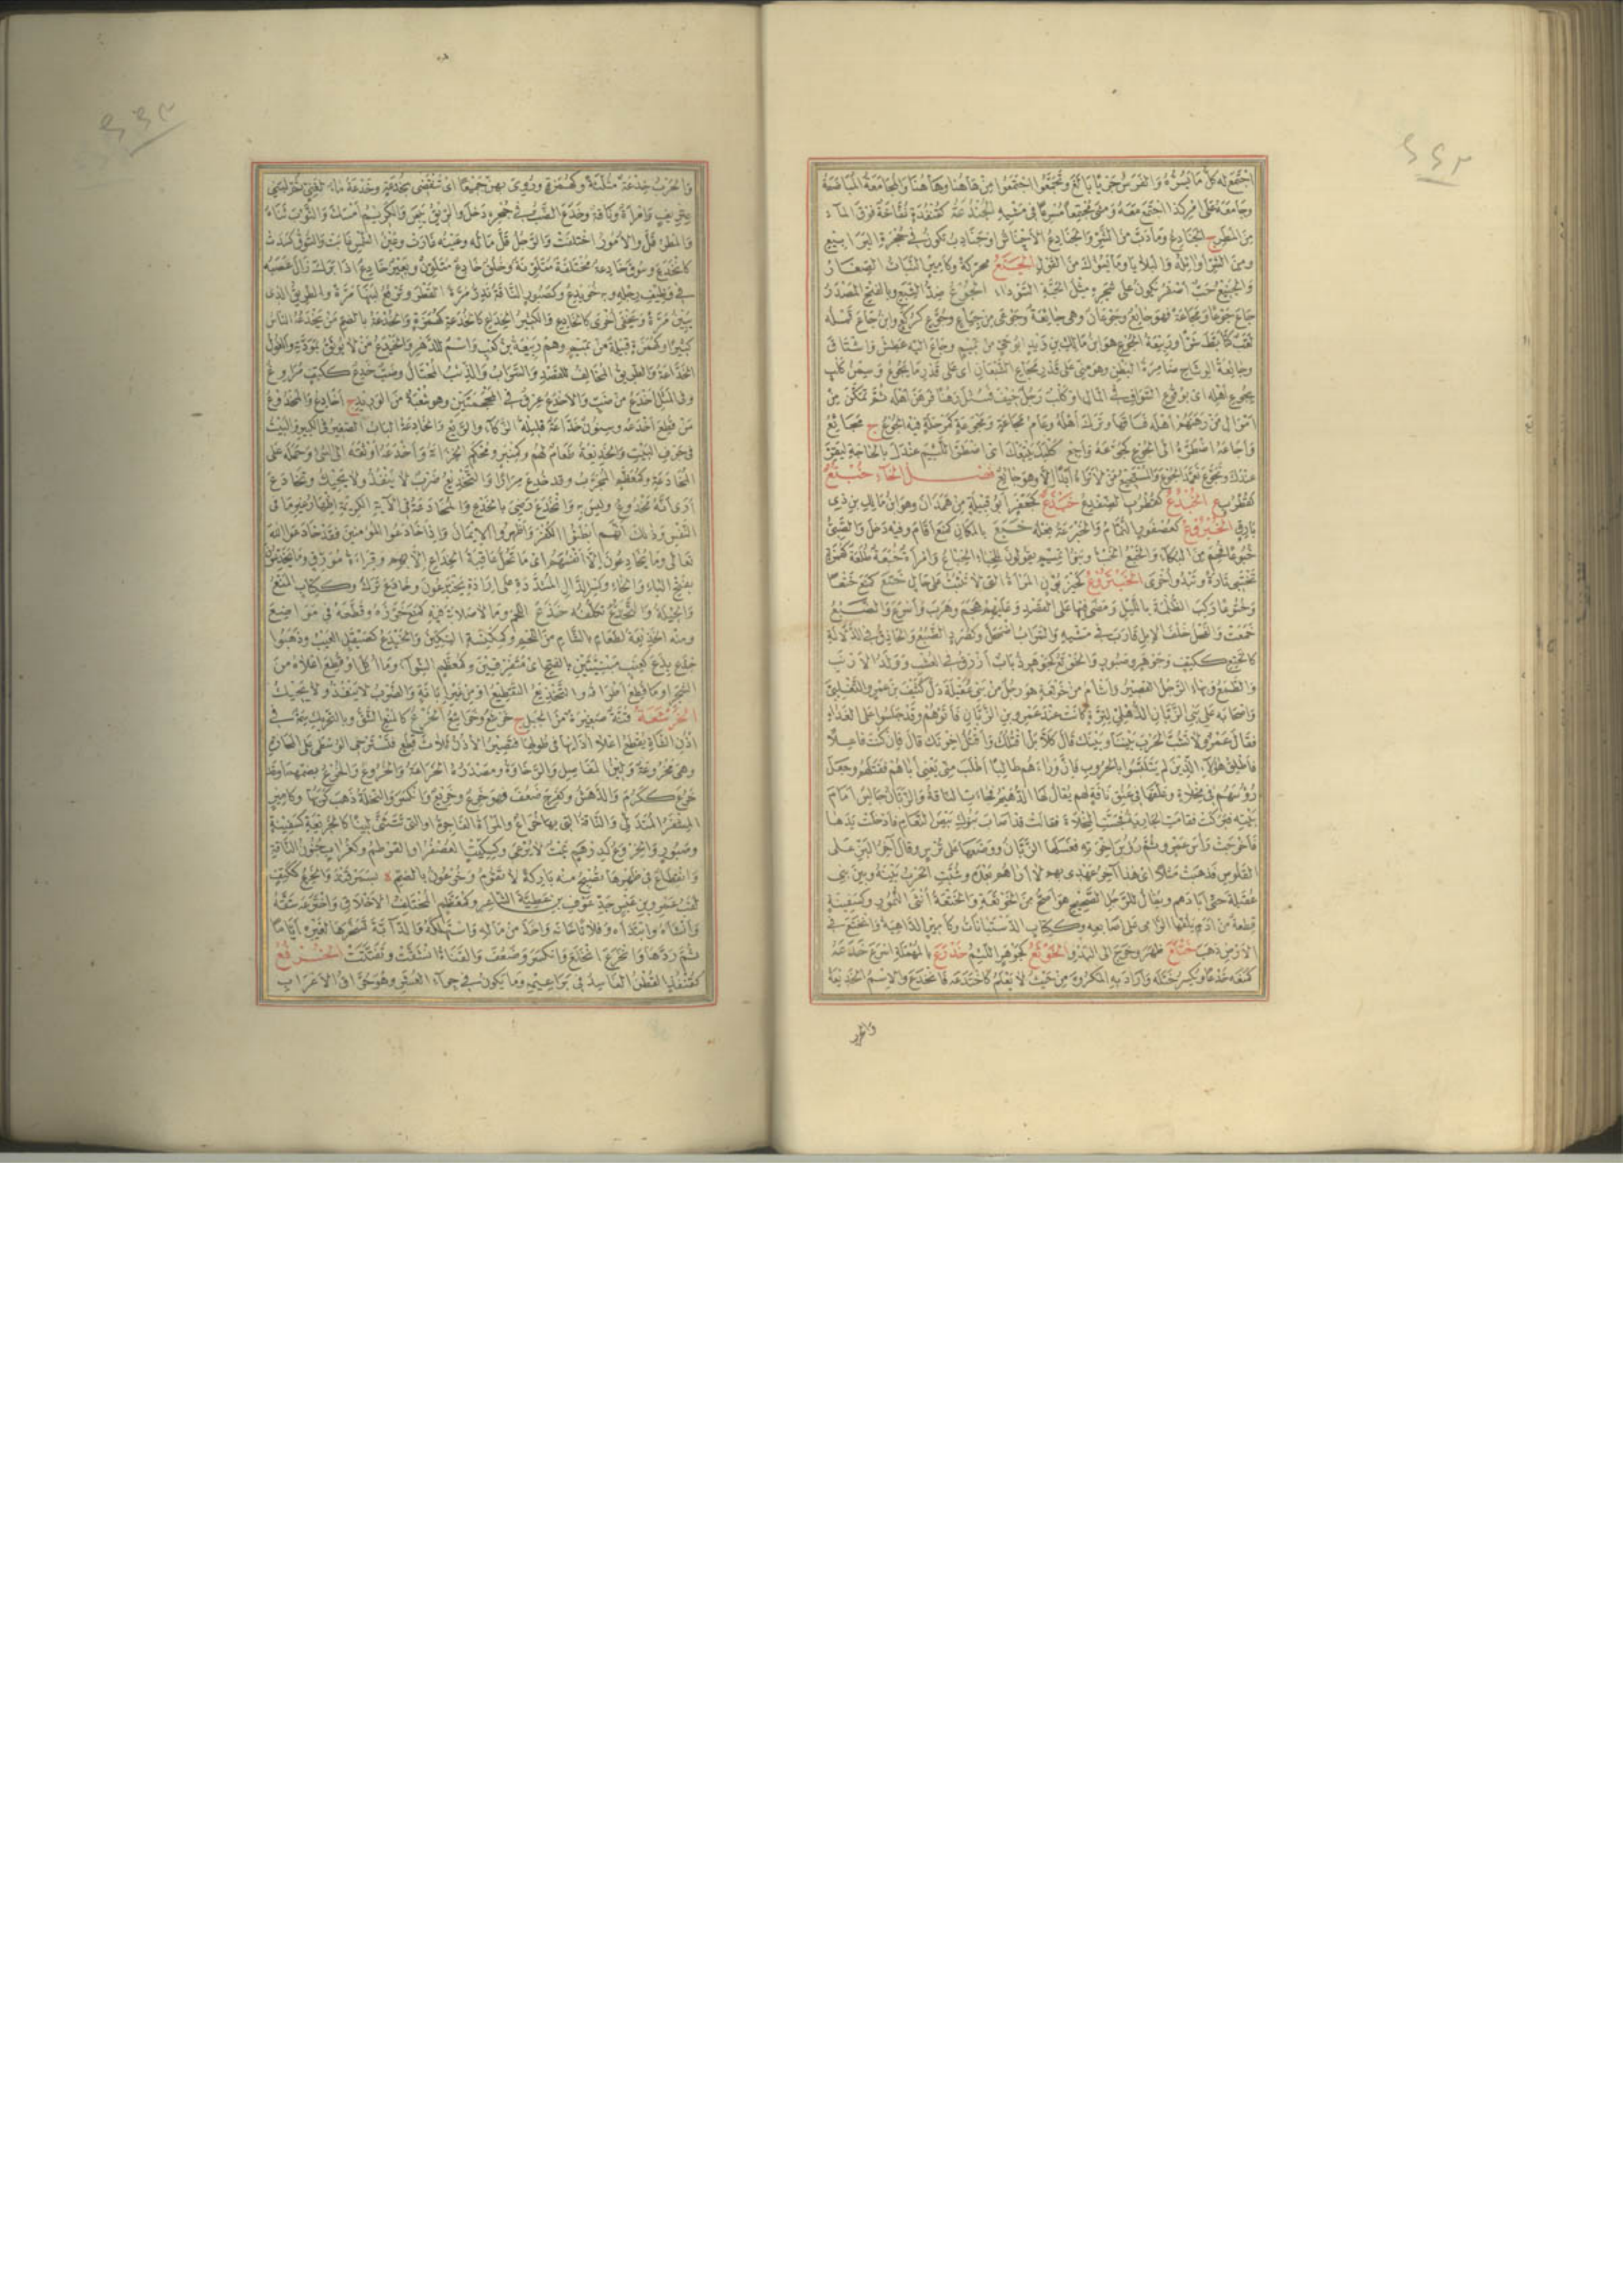 اجْتَمَعَ لَه كُلُّ مَا يَسُرُّهُ وَالفَرَسُ جَرْيًا بَالَغَ وَتَجَمَّعُوا اجْتَمَعُوا مِنْ هَاهُنَا وَهَاهُنَا وَالْمُجَامَعَةُ الْمُبَاضَعَةُ
وجَامَعَهُ عَلَى أمْرِ كَذَا اجْتَمَعَ مَعَهُ وَمَشَى مُجْتَمِعاً مُسْرِعاً فِي مَشْيِهِ الْجُنْدُعَةُ كَقُنْفُذَةٍ نُفَّاخَةٌ فَوْقَ المآء
مِنَ المَطَرِ ج الْجَنَادِعُ وَمَا دَبَّ مِنَ الشَّرِّ وَالْجَنَادِعُ الأَحْنَاشُ أوْ جَنَادِبُ تَكُونُ فِي جُحْرَةِ اليَرَابِيعِ
ومِنَ الشَّرِّ أوَائِلُهُ وَالْبَلَايَا وَمَا يَسُوءُكَ مِنَ القَوْلِ الْجَنَعُ مُحَرَّكَةً وَكَأَمِيرٍ النَّبَاتُ الصِّغَارُ
وَالْجَنِيعُ حَبٌّ أصْفَرُ يَكُونُ عَلَى شَجَرِهِ مِثْلَ الحَبَّةِ السَّوْدَاء الْجُوعُ ضِدُّ الشِّبَعِ وبِالفَتْحِ الْمَصْدَرُ
جَاعَ جَوْعًا وَمَجَاعَةً فَهُوَ جَائِعٌ وَجَوْعَانُ وهِيَ جَائِعَةٌ وَجَوْعَى مِنْ جِيَاعٍ وَجُوَّعٍ كَرُكَّعٍ وابْنُ جَاعَ قَمْلُهُ
لَقَبُ كَتَأَبَّطَ شَرًّا وَرَبِيعَةُ الْجُوعِ هُوَ ابْنُ مَالِكِ بْنِ زَيْدٍ أبُو حَيٍّ مِنْ تَمِيمٍ وَجَاعَ إليه عَطِشَ وَاشْتَاقَ
وجَائِعَةُ الوِشَاحِ ضَامِرَةُ البَطْنِ وهُوَ مِنِّي عَلَى قَدْرِ مَجَاعِ الشَّبْعَانِ أىْ عَلَى قَدْرِ مَا يَجُوعُ وَسِمَنُ كَلْبٍ
بِجُوعِ أهْلِهِ أى بِوُقُوعِ السَّوَافِ فِي المَالِ أوْ كَلْبٌ رَجُلٌ خِيفَ فَسُئِلَ رَهْنًا فَرَهَنَ أهْلَهُ ثُمَّ تَمَكَّنَ مِنْ
أمْوَالِ مَنْ رَهَنَهُمْ أهْلَهُ فَسَاقَهَا وتَرَكَ أهْلَهُ وَعَامُ مَجَاعَةٍ وَمَجْوَعَةٍ كَمَرْحَلَةٍ فِيهِ الْجُوعُ ج مَجَائِعُ
وَأَجَاعَهُ اضْطَرَّهُ إلَى الْجُوعِ كَجَوَّعَهُ وَأجِعْ كَلْبَكَ يَتْبَعْكَ أى اضْطَرَّ اللَّئِيمَ عِنْدَكَ بِالحَاجَةِ لِيَقِرَّ
عِنْدَكَ وَتَجَوَّعَ تَعَمَّدَ الْجُوعَ وَالمُسْتَجِيعُ مَنْ لاَ تَرَاهُ أبَدًا إلاَّ وَهُوَ جَائِعٌ فَصْلُ الخَآء خُبْتُعٌ
كَقُطْرُبٍ ع الْخُبْدُعُ كَقُطْرُبٍ الضِّفْدِعُ خَبْذَعٌ كَجَعْفَرٍ أبُو قَبِيلَةٍ مِنْ هَمْدَانَ وَهُوَ ابْنُ مَالِكِ بْنِ ذِي
بَارِقٍ الْخُبْرُوعُ كَعُصْفُورٍ النَّمَّامُ وَالْخَبْرَعَةُ فِعْلُهُ خَبَعَ بِالمَكَانِ كَمَنَعَ أقَامَ وفِيهِ دَخَلَ وَالصَّبِيُّ
خُبُوعًا فُحِمَ مِنَ البُكَآء وَالخَبْعُ الخَبْأُ وبَنُو تَمِيمٍ يَقُولُونَ لِلْخِبَاءِ الْخِبَاعُ وَامْرَأَةٌ خُبَعَةٌ طُلَعَةٌ كَهُمَزَةٍ
تَخْتَبِئُ تَارَةً وتَبْدُو أُخْرَى الْخَيْتَرُوعُ كَحَيْزَبُونٍ المَرْأَةُ الَّتِي لاَ تَثْبُتُ عَلَى حَالٍ خَتَعَ كَمَنَعَ خَتْعًا
وَخُتُوعًا رَكِبَ الظُّلْمَةَ بِاللَّيْلِ وَمَضَى فِيهَا عَلَى القَصْدِ وَعَلَيْهِمْ هَجَمَ وَهَرَبَ وَأسْرَعَ وَالضَّبُعُ
خَمَعَتْ وَالفَحْلُ خَلْفَ الإِبِلِ قَارَبَ فِي مَشْيِهِ وَالسَّرَابُ اضْمَحَلَّ وكَصُرَدٍ الضَّبُعُ وَالحَاذِقُ فِي الدَّلاَلَةِ
كَالخَتِعِ كَكَتِفٍ وَجَوْهَرٍ وصَبُورٍ وَالخَوْتَعُ كَجَوْهَرٍ ذُبَابٌ أزْرَقُ فِي العُشْبِ وَوَلَدُ الأَرْنَبِ
وَالطَّمَعُ وبِهَاء الرَّجُلُ القَصِيرُ وَأشْأَمُ مِنْ خَوْتَعَةَ هُوَ رَجُلٌ مِنْ بَنِي غُفَيْلَةَ دَلَّ كُثَيْفَ بْنَ عَمْرٍو التَّغْلِبِيَّ
وَأصْحَابَهُ عَلَى بَنِي الزَّبَّانِ الذُّهْلِيِّ لِتِرَةٍ كَانَتْ عِنْدَ عَمْرِو بْنِ الزَّبَّانِ فَأَتَوْهُمْ وَقَدْ جَلَسُوا عَلَى الغَدَاءِ
فقَالَ عَمْرٌو لَا تَشُبَّ الحَرْبَ بَيْنَنَا وَبَيْنَكَ قَالَ كَلاَّ بَلْ أقْتُلُكَ وَأقْتُلُ إخْوَتَكَ قَالَ فَإِنْ كُنْتَ فَاعِلاً
فَأَطْلِقْ هٰؤُلآء الَّذِينَ لَمْ يَتَلَبَّسُوا بِالحُرُوبِ فَإِنَّ وَرَاءَهُمْ طَالِبًا أطْلَبَ مِنِّي يَعْنِي أبَاهُمْ فَقَتَلَهُمْ وَجَعَلَ
رُؤُسَهُمْ فِي مِخْلاَةٍ وعَلَّقَهَا فِي عُنُقِ نَاقَةٍ لَهُمْ يُقَالُ لَهَا الدُّهَيْمُ فَجَاءَتِ النَّاقَةُ وَالزَّبَّانُ جَالِسٌ أمَامَ
بَيْتِهِ فَبَرَكَتْ فَقَامَتِ الجَارِيَةُ فَجَسَّتِ الْمِخْلاَةَ فَقَالَتْ قَدْ أصَابَ بَنُوكَ بَيْضَ النَّعَامِ فَأَدْخَلَتْ يَدَهَا
فَأَخْرَجَتْ رَأْسَ عَمْرٍو ثُمَّ رُؤُسَ إخْوَتِهِ فَغَسَلَهَا الزَّبَّانُ وَوَضَعَهَا عَلَى تُرْسٍ وقَالَ آخِرُ البَزِّ عَلَى
القَلُوصِ فَذَهَبَتْ مَثَلاً أىْ هٰذَا آخِرُ عَهْدِي بِهِمْ لاَ أرَاهُمْ بَعْدَهُ وشُبَّتِ الحَرْبُ بَيْنَهُ وَبَيْنَ بَنِي
غُفَيْلَةَ حَتَّى أبَادَهُمْ ويُقَالُ لِلرَّجُلِ الصَّحِيحِ هُوَ أصَحُّ مِنَ الخَوْتَعَةِ وَالخُتَعَةُ أُنْثَى النُّمُورِ وكَسَفِينَةٍ
قِطْعَةٌ مِنْ أدَمٍ يَلُفُّهَا الرَّامِى عَلَى أصَابِعِهِ وكَكِتَابٍ الدَّسْتَبَانَاتُ وكَأَمِيرٍ الدَّاهِيَةُ وَانْخَتَعَ فِي
الأَرْضِ ذَهَبَ خَتْلَعَ ظَهَرَ وخَرَجَ إلَى البَدْوِ الْخَوْثَعُ كَجَوْهَرٍ اللَّئِيمُ خَدْرَعَ بِالمُهْمَلَةِ أسْرَعَ خَدَعَهُ
كَمَنَعَهُ خَدْعًا ويُكْسَرُ خَتَلَهُ وَأرَادَ بِهِ المَكْرُوهَ مِنْ حَيْثُ لاَ يَعْلَمُ كَاخْتَدَعَهُ فَانْخَدَعَ وَالاِسْمُ الخَدِيعَةُ
والحرب
وَالحَرْبُ خُدْعَةٌ مُثَلَّثَةً وكَهُمَزَةٍ ورُوِيَ بِهِنَّ جَمِيعًا أىْ تَنْقَضِي بِخُدْعَةٍ وخَدْعَةُ مَاءٌ لِغَنِيٍّ ثُمَّ لِبَنِي
عِتْرِيفٍ وَامْرَأَةٌ وَنَاقَةٌ وَخَدَعَ الضَّبُّ فِي جُحْرِهِ دَخَلَ وَالرِّيقُ يَبِسَ وَالكَرِيمُ أمْسَكَ وَالثَّوْبَ ثَنَاهُ
وَالمَطَرُ قَلَّ وَالأُمُورُ اخْتَلَفَتْ وَالرَّجُلُ قَلَّ مَالُهُ وعَيْنُهُ غَارَتْ وعَيْنُ الشَّمْسِ غَابَتْ وَالسُّوقُ كَسَدَتْ
كَانْخَدَعَ وسُوقٌ خَادِعَةٌ مُخْتَلِفَةٌ مُتَلَوِّنَةٌ وخُلُقٌ خَادِعٌ مُتَلَوِّنٌ وبَعِيرٌ خَادِعٌ إذَا بَرَكَ زَالَ عَصَبُهُ
فِي وَظِيفِ رِجْلِهِ وبِهِ خُوَيْدِعٌ وكَصَبُورٍ النَّاقَةُ تَدِرُّ مَرَّةً القَطْرَ وتَرْفَعُ لَبَنَهَا مَرَّةً وَالطَّرِيقُ الَّذِى
يَبِينُ مَرَّةً وَيَخْفَى أُخْرَى كَالخَادِعِ وَالكَثِيرُ الخِدَاعِ كَالخُدَعَةِ كَهُمَزَةٍ وَالخُدْعَةُ بِالضَّمِّ مَنْ يَخْدَعُهُ النَّاسُ
كَثِيرًا وكَهُمَزَةٍ قَبِيلَةٌ مِنْ تَمِيمٍ وهُمْ رَبِيعَةُ بْنُ كَعْبٍ وَاسْمٌ لِلدَّهْرِ وَالخَيْدَعُ مَنْ لاَ يُوثَقُ بِمَوَدَّتِهِ وَالغُولُ
الخَدَّاعَةُ وَالطَّرِيقُ المُخَالِفُ لِلقَصْدِ وَالسَّرَابُ وَالذِّئْبُ المُحْتَالُ وضَبٌّ خَدِعٌ كَكَتِفٍ مُرَاوِغٌ
وفِي المَثَلِ أخْدَعُ مِنْ ضَبٍّ وَالأَخْدَعُ عِرْقٌ فِي المَحْجَمَتَيْنِ وهُوَ شُعْبَةٌ مِنَ الوَرِيدِ ج أخَادِعُ وَالمَخْدُوعُ
مَنْ قُطِعَ أخْدَعُهُ وسِنُونَ خَدَّاعَةٌ قَلِيلَةُ الزَّكَآء وَالرَّيْعِ وَالخَادِعَةُ البَابُ الصَّغِيرُ فِي الكَبِيرِ وَالبَيْتُ
فِي جَوْفِ البَيْتِ وَالخَدِيعَةُ طَعَامٌ لَهُمْ وكَمِنْبَرٍ ومُحْكَمٍ الخِزَانَةُ وَأخْدَعَهُ أوْثَقَهُ إلَى الشَّىْءِ وحَمَلَهُ عَلَى
المُخَادَعَةِ وكَمُعَظَّمٍ المُجَرَّبُ وقَدْ خُدِعَ مِرَارًا وَالتَّخْدِيعُ ضَرْبٌ لاَ يَنْفُذُ ولاَ يَحِيكُ وتَخَادَعَ
أرَى أنَّهُ مَخْدُوعٌ ولَيْسَ بِهِ وَانْخَدَعَ رَضِىَ بِالخَدْعِ وَالمُخَادَعَةُ فِي الآيَةِ الكَرِيمَةِ إظْهَارُ غَيْرِ مَا فِي
النَّفْسِ وذٰلِكَ أنَّهُمْ أبْطَنُوا الكُفْرَ وَأظْهَرُوا الإِيمَانَ وَإذَا خَادَعُوا المُؤْمِنِينَ فَقَدْ خَادَعُوا اللهَ
تَعَالَى ومَا يُخَادِعُونَ إلاَّ أنْفُسَهُمْ أىْ مَا تَحُلُّ عَاقِبَةُ الخِدَاعِ إلاَّ بِهِمْ وقِرَاءَةُ مُوَرِّقٍ ومَا يَخَدِّعُونَ
بِفَتْحِ اليَاءِ وَالخَاءِ وكَسْرِ الدَّالِ المُشَدَّدَةِ عَلَى إرَادَةِ يَخْتَدِعُونَ وخَادَعَ تَرَكَ وكَكِتَابٍ المَنْعُ
وَالحِيلَةُ وَالتَّخَدُّعُ تَكَلُّفُهُ خَذَعَ اللَّحْمَ ومَا لاَ صَلاَبَةَ فِيهِ كَمَنَعَ حَزَّزَهُ وقَطَّعَهُ فِي مَوَاضِعَ
ومِنْهُ الخَذِيعَةُ لِطَعَامٍ بِالشَّامِ مِنَ اللَّحْمِ وكَمِكْنَسَةٍ السِّكِّينُ وَالخَيْذَعُ كَصَيْقَلٍ العَيْبُ وذَهَبُوا
خِذَعَ مِذَعَ كَعِنَبٍ مَبْنِيَّتَيْنِ بِالفَتْحِ أىْ مُتَفَرِّقِينَ وكَمُعَظَّمٍ الشِّوَآء ومَا أُكِلَ أوْ قُطِعَ أعْلاَهُ مِنَ
الشَّجَرِ أوْ مَا قُطِعَ أطْرَافُهُ وَالتَّخْذِيعُ التَّقْطِيعُ أوْ مِنْ غَيْرِ إبَانَةٍ وَالضَّرْبُ لاَ يَنْفُذُ وَلاَ يَحِيكُ
الْخَرْشَعَةُ قُنَّةٌ صَغِيرَةٌ مِنَ الجَبَلِ ج خَرْشَعٌ وخَرَاشِعُ الْخَرْعُ كَالمَنْعِ الشَّقُّ وبِالتَّحْرِيكِ سِمَةٌ فِي
أُذُنِ الشَّاةِ يُقْطَعُ أعْلاَ أُذُنِهَا فِي طُولِهَا فَتَصِيرُ الأُذُنُ ثَلاَثَ قِطَعٍ فَتَسْتَرْخِى الوُسْطَى عَلَى المَحَارَةِ
وهِىَ مَخْرُوعَةٌ وَلِينُ المَفَاصِلِ وَالرَّخَاوَةُ ومَصْدَرُهُ الخَرَاعَةُ وَالخُرُوعُ وَالخُرْعُ بِضَمِّهِمَا وقَدْ
خَرُعَ كَكَرُمَ وَالدَّهَشُ وكَفَرِحَ ضَعُفَ فَهُوَ خَرِعٌ وخَرِيعٌ وَانْكَسَرَ وَالنَّخْلَةُ ذَهَبَ كَرَبُهَا وكَأَمِيرٍ
المِشْفَرُ المُتَدَلِّى وَالنَّاقَةُ الَّتِى بِهَا خُرَاعٌ وَالمَرْأَةُ الفَاجِرَةُ أوِ الَّتِى تَتَثَنَّى لِينًا كَالخَرِيعَةِ كَسَفِينَةٍ
وصَبُورٍ وَالخِرْوَعُ كَدِرْهَمٍ نَبْتٌ لاَ يُرْعَى وكَسِكِّيتٍ العُصْفُرُ أوِ القُرْطُمُ وكَغُرَابٍ جُنُونُ النَّاقَةِ
وَانْقِطَاعٌ فِي ظَهْرِهَا تُصْبِحُ مِنْهُ بَارِكَةً لاَ تَقُومُ وخُرْعُونُ بِالضَّمِّ ة بِسَمَرْقَنْدَ وَالخَرِعُ كَكَتِفٍ
لَقَبُ عَمْرِو بْنِ عَبْسٍ جَدِّ عَوْفِ بْنِ عَطِيَّةَ الشَّاعِرِ وكَمُعَظَّمٍ المُخْتَلِفُ الأَخْلاَقِ وَاخْتَرَعَهُ شَقَّهُ
وَأنْشَأَهُ وَابْتَدَأَهُ وَفُلاَنًا خَانَهُ وَأخَذَ مِنْ مَالِهِ وَاسْتَهْلَكَهُ وَالدَّآبَّةَ تَسَخَّرَهَا لِغَيْرِهِ أيَّامًا
ثُمَّ رَدَّهَا وَانْخَرَعَ انْخَلَعَ وَانْكَسَرَ وَضَعُفَ وَالقَنَاةُ انْشَقَّتْ وتَفَتَّتَتْ الْخُرْفُعُ
كَقُنْفُذٍ القُطْنُ الفَاسِدُ فِي بَرَاعِيمِهِ ومَا يَكُونُ فِي جِرَآء العُشَرِ وهُوَ حُرَّاقُ الأَعْرَابِ